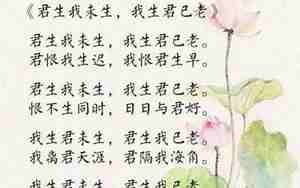 《君生我未生，我生君已老》
君生我未生，我生君已老。
君恨我生迟，我恨君生早。
君生我未生，我生君已老。
恨不生同时，日日与君好。
我生君未生，君生我已老。
我离君天涯，君隔我海角。
我生君未生，君生我已老。